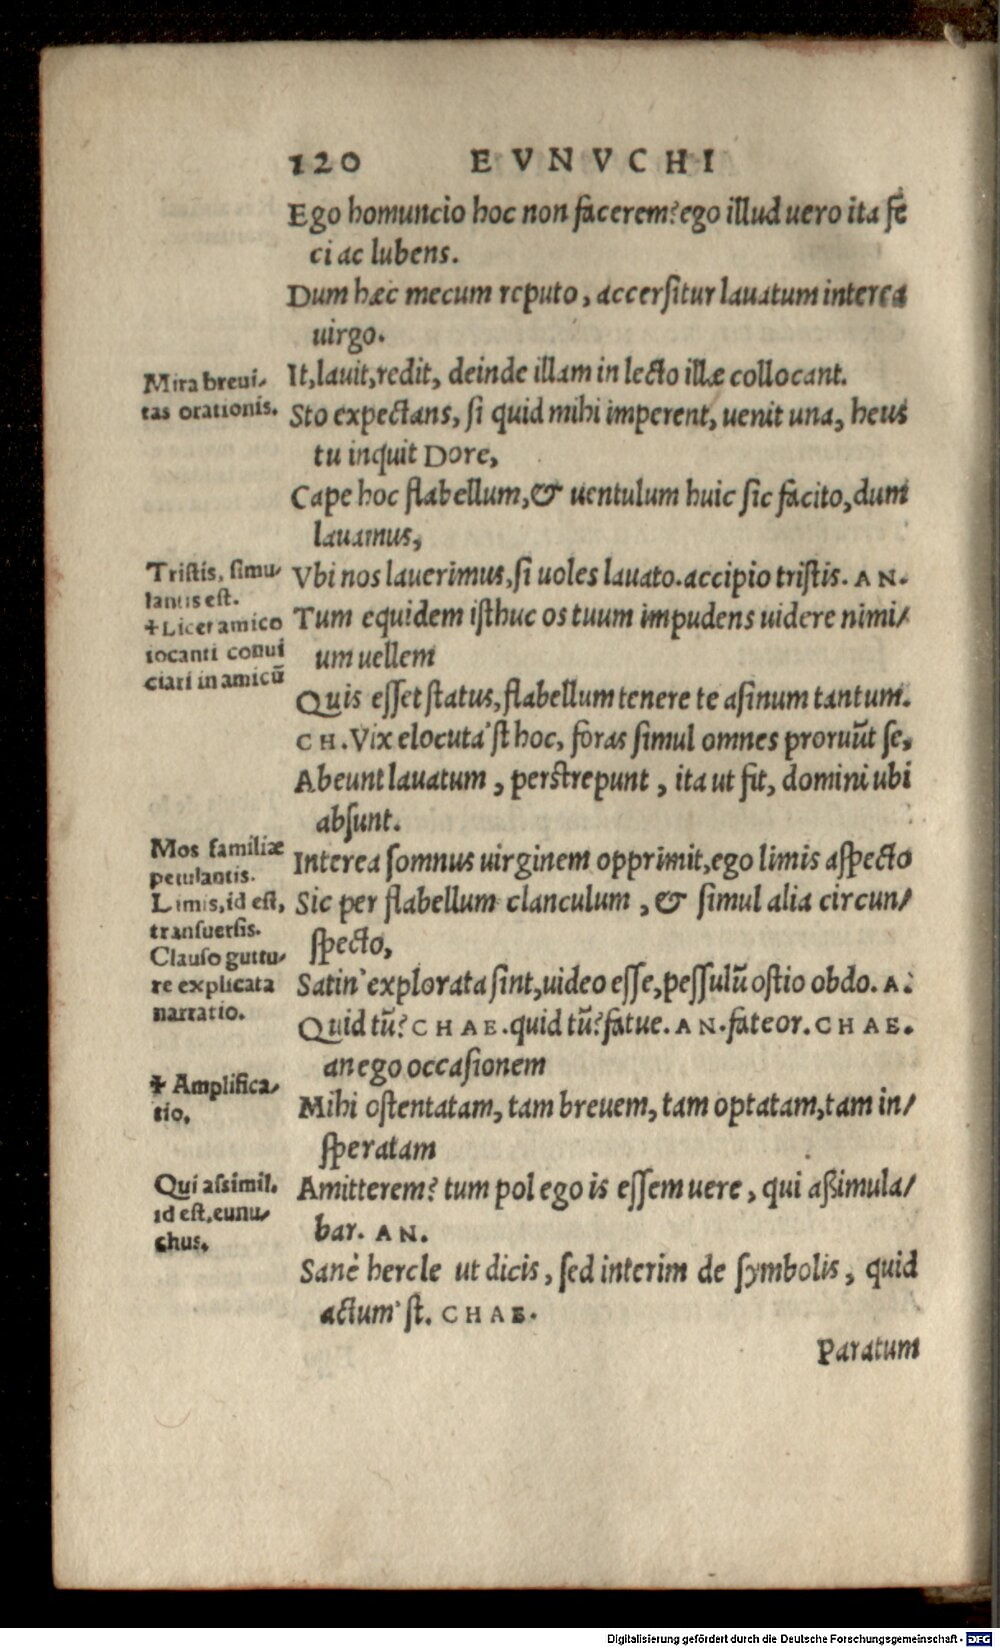 120 EVNVCHI
Ego homuncio hoc non facerem? ego illud uero ita fē
ci ac lubens.
Dum hæc mecum reputo, accersitur lauatum interea
uirgo.
Mira breui-
tas orationis.
It, lauit, redit, deinde illam in lecto illæ collocant.
Sto expectans, si quid mihi imperent, uenit una, heus
tu inquit Dore,
Cape hoc flabellum, & uentulum huic sic facito, dum
lauamus,
Tristis, simu-
lantis est.
✝Licet amico
iocanti conui
ciari in amicū
Vbi nos lauerimus, si uoles lauato. accipio tristis. AN.
Tum equidem isthuc os tuum impudens uidere nimi-
um uellem
Quis esset status, flabellum tenere te asinum tantum.
CH. Vix elocuta'st hoc, foras simul omnes proruūt se,
Abeunt lauatum, perstrepunt, ita ut fit, domini ubi
absunt.
Mos familiæ
petulantis.
Limis, id est,
transuersis.
Clauso guttu-
re explicata
narratio.
Interea somnus uirginem opprimit, ego limis aspecto
Sic per flabellum clanculum, & simul alia circun-
specto,
Satin' explorata sint, uideo esse, pessulū ostio obdo. A.
Quid tū? CHAE. quid tū? fatue. AN. fateor. CHAE.
an ego occasionem
✝ Amplifica-
tio.
Mihi ostentatam, tam breuem, tam optatam, tam in-
speratam
Qui assimil.
id est, eunu-
chus.
Amitterem? tum pol ego is essem uere, qui aßimula-
bar. AN.
Sanè hercle ut dicis, sed interim de symbolis, quid
actum'st. CHAE.
Paratum
Digitalisierung gefördert durch die Deutsche Forschungsgemeinschaft - DFG